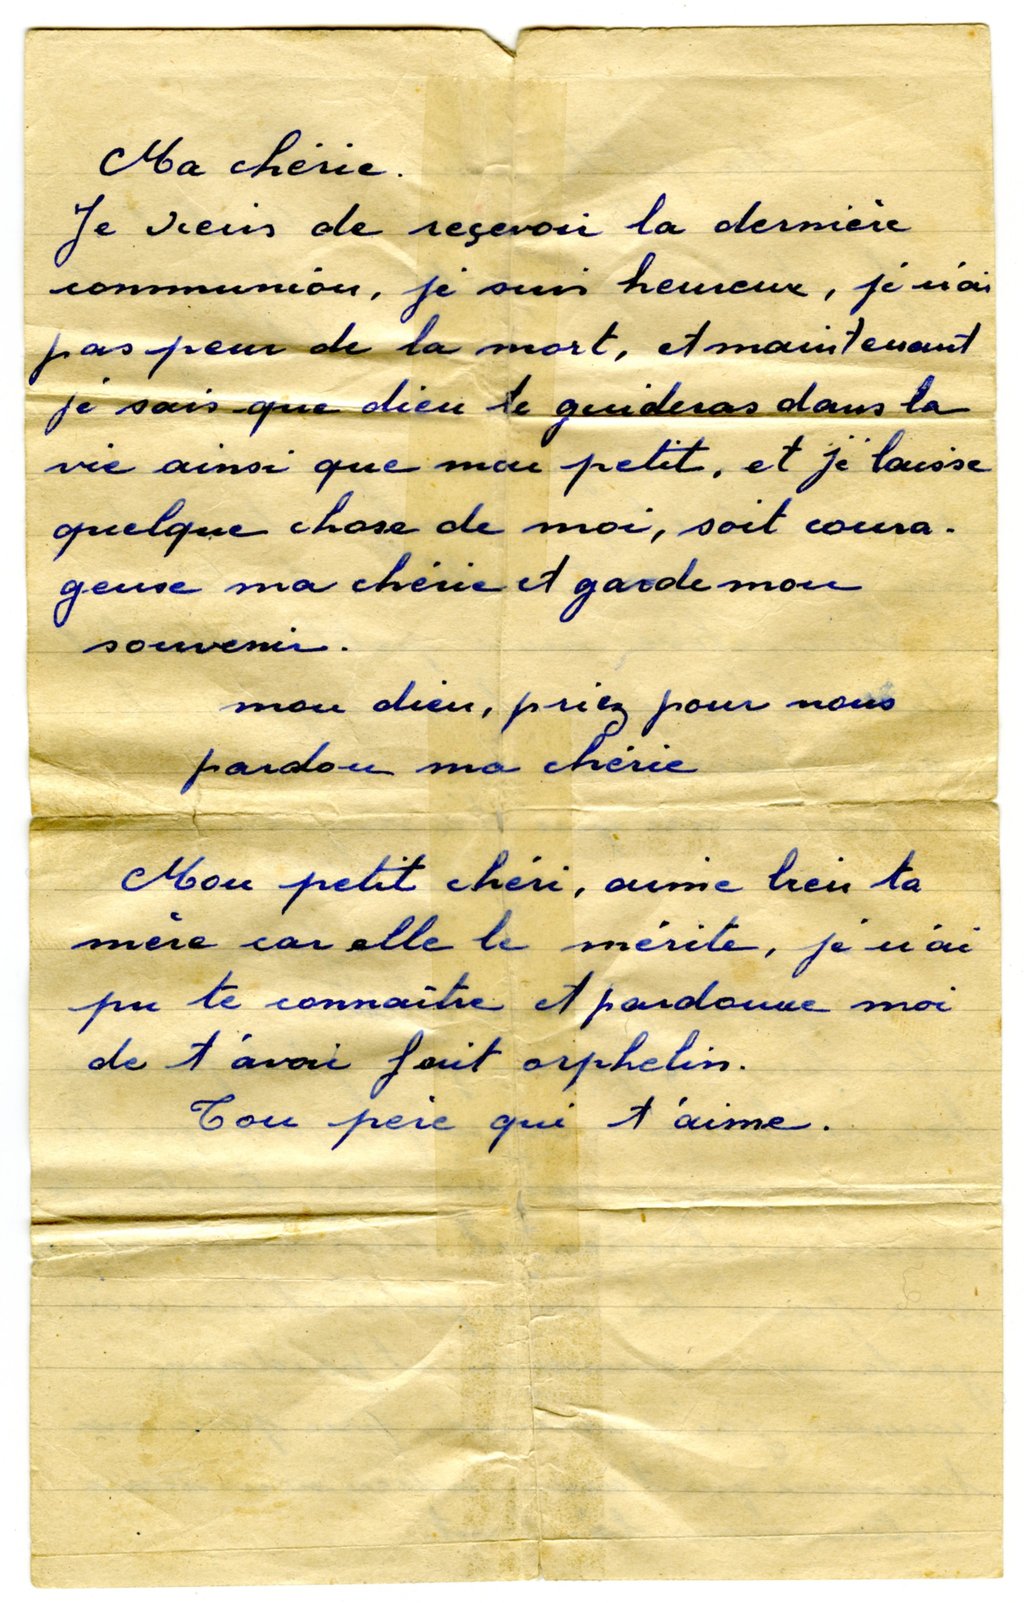 Ma chérie.
Je viens de reçevoir la dernière
communion, je suis heureux, je n'ai
pas peur de la mort, et maintenant
je sais que dieu te guideras dans la
vie ainsi que mon petit, et je laisse
quelque chose de moi, soit coura-
geuse ma chérie et garde mon
souvenir.
mon dieu, priez pour nous
pardon ma chérie
Mon petit chéri, aime bien ta
mère car elle le mérite, je n'ai
pu te connaître et pardonne moi
de t'avoir fait orphelin.
Ton père qui t'aime.